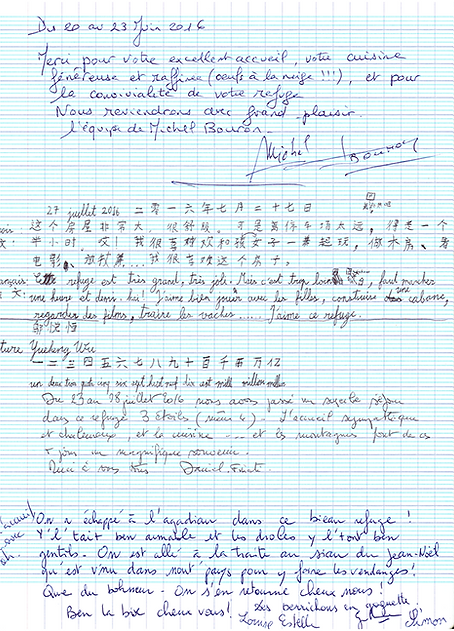 Du 20 au 23 Juin 2016
Merci pour votre excellent accueil, votre cuisine
généreuse et raffinée (oeufs à la neige !!!), et pour
la convivialité de votre refuge
Nous reviendrons avec grand plaisir.
l'équipe de Michel Bouron
Michel BOURON
27 juillet 2016 二零一六年七月二十七日
这个房屋非常大,很舒服。停车场太远,得走一个
半小时。哎!我很喜欢和孩女子一起玩,做木房、看
电影、我很喜欢这个房子。
refuge est très grand, très joli. Mais c'est trop loin, faut marcher
une heure et demi. hai! J'aime bien jouer avec les filles, construire une cabane,
regarder des films, traire les vaches ..... J'aime ce refuge.
ture Yueheng Wu
一二三四五六七八九十百千万亿
un deux trois quatre cinq six sept huit neuf dix cent mille million
Du 23 au 28 juillet 2016 nous avons passé un séjour
dans ce refuge 3 étoiles (même 4). L'accueil sympathique
et chaleureux, et la cuisine ... et les montagnes font de ces
jours un magnifique souvenir.
Merci à vous tous Daniel
l'accueil On a échappé à l'agadian dans ce bieau refuge !
avec Y'l'tait ben aimable et les droles y l'tont ben
gentils. On est allé à la traite au sian du Jean-Noël
qu'est v'nu dans nout' pays pour y faire les vendanges!
Que du bohneur. On s'en retourne cheux nous!
Ben la bix cheux vous! Les berrichons en goguette
Louise Estelle Simon